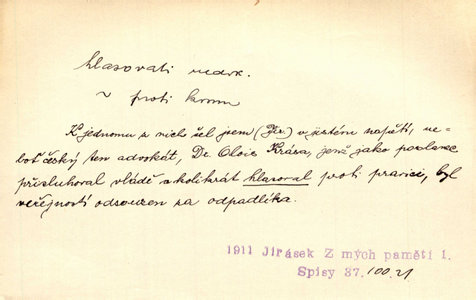 hlasovati nedok.
~ proti komu
K jednomu z nich šel jsem (Jir.) v jistém napětí, ne-
boť český ten advokát, Dr. Alois Krása, jenž jako poslanec
přisluhoval vládě a kolikrát hlasoval proti pravici, byl
veřejností odsouzen za odpadlíka.
1911 Jirásek Z mých pamětí 1.
Spisy 37. 100.21